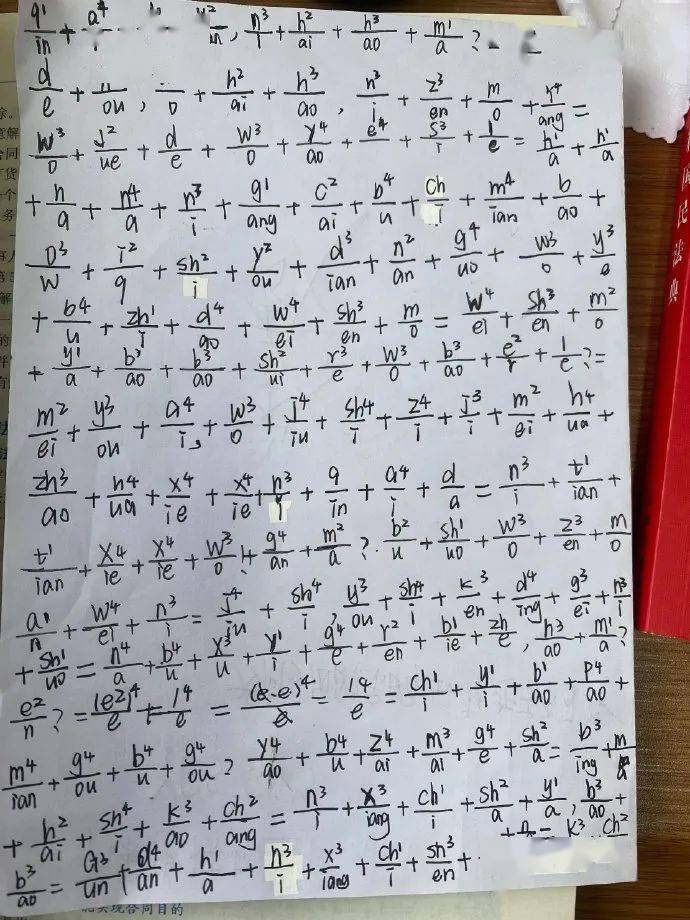 q¹/in + a⁴/ n³/i + h²/ai + h³/ao + m¹/a ?
d/e + /ou , /o + h²/ai + h³/ao , n³/i + z³/en + m/o + /ang =
w³/o + j²/ue + d/e + w³/o + y⁴/ao + e⁴/ + s³/i + l/e = h¹/a + h¹/a
+ h/a + n⁴/a + n³/i + g¹/ang + c²/ai + b⁴/u + ch/i + m⁴/ian + b/ao +
o³/w + i²/q + sh²/i + y²/ou + d³/ian + n²/an + g⁴/uo + w³/o + y³/
+ b⁴/u + zh¹/i + d⁴/ao + w⁴/ei + sh³/en + m/o = w⁴/ei + sh³/en + m²/o
+ y¹/a + b³/ao + b³/ao + sh²/ui + r³/e + w³/o + b³/ao + e²/r + l/e ? =
m²/ei + y³/ou + a⁴/i , + w³/o + j⁴/iu + sh⁴/i + z⁴/i + j³/i + m²/ei + h⁴/ua +
zh³/ao + h⁴/ua + x⁴/ie + x⁴/ie + n³/i + q/in + a⁴/i + d/a = n³/i + t¹/ian +
t¹/ian + x⁴/ie + x⁴/ie + w³/o ! + g⁴/an + m²/a ? . b²/u + sh¹/uo + w³/o + z³/en + m/o
a¹/n + w⁴/ei + n³/i = j⁴/iu + sh⁴/i , y³/ou + sh⁴/i + k³/en + d⁴/ing + g³/ei + n³/i
+ sh¹/uo = n⁴/a + b⁴/u + x³/u + y¹/i + g⁴/e + r²/en + b¹/ie + zh/e , h³/ao + m¹/a ?
e²/n ? = (e²)⁴/e + l⁴/e = (e·e)⁴/e = l⁴/e = ch¹/i + y¹/i + b¹/ao + p⁴/ao +
m⁴/ian + g⁴/ou + b⁴/u + g⁴/ou ? y⁴/ao + b⁴/u + z⁴/ai + m³/ai + g⁴/e + sh²/a = b³/ing + m/a
+ h²/ai + sh⁴/i + k³/ao + ch²/ang = n³/i + x³/iang + ch¹/i + sh²/a + y¹/a , b³/ao +
b³/ao = G³/un + d⁴/an + h¹/a + n³/i + x³/iang + ch¹/i + sh³/en + k³ ch²